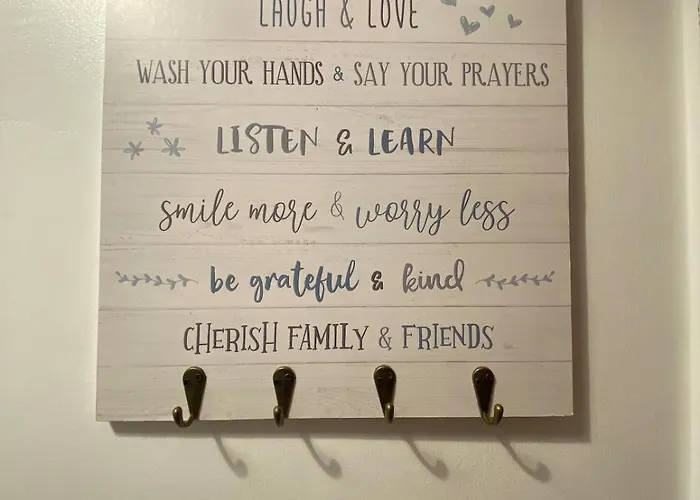 LAUGH & LOVE
WASH YOUR HANDS & SAY YOUR PRAYERS
LISTEN & LEARN
smile more & worry less
be grateful & kind
CHERISH FAMILY & FRIENDS